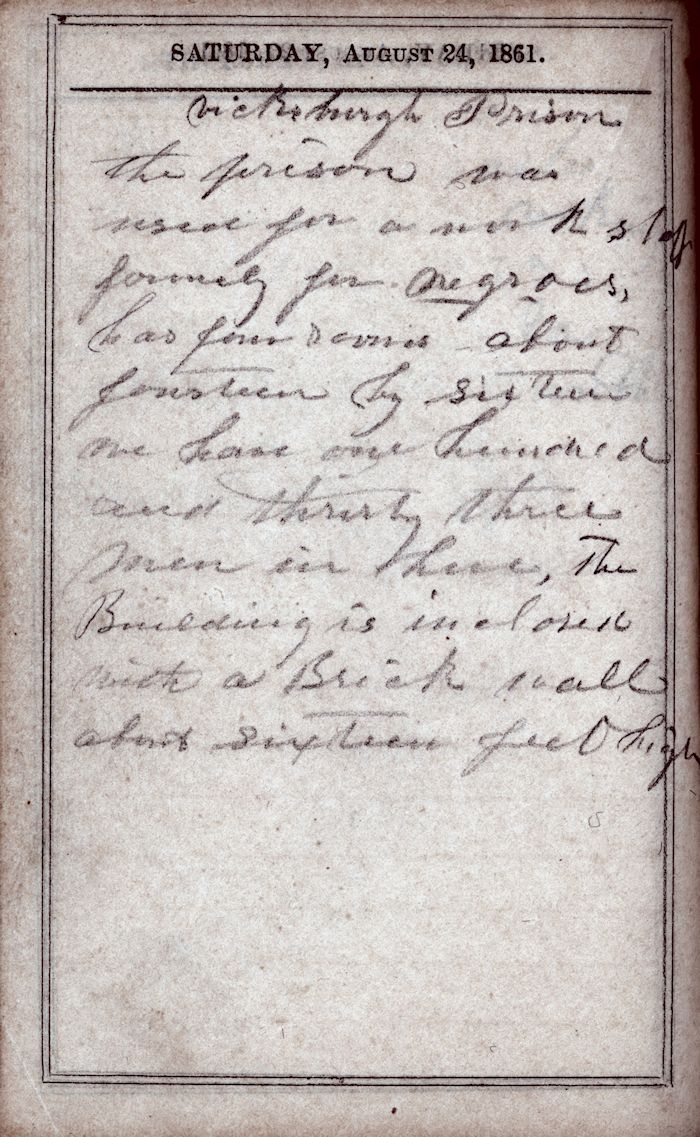 SATURDAY, AUGUST 24, 1861.
Vicksburgh Prison
the prison was
used for a work shop
formely for negroes,
has four rooms about
fourteen by sixteen
we have one hundred
and thirty three
men in here, The
Building is inclosed
with a Brick wall
about sixteen feet high